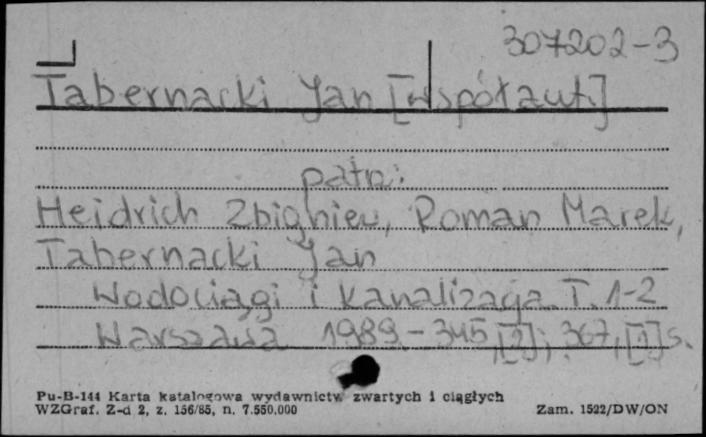 307202-3
Tabernacki Jan [współaut.]
patrz:
Heidrich Zbigniew, Roman Marek,
Tabernacki Jan
Wodociągi i kanalizacja T. 1-2
Warszawa 1989.- 345, [2]; 367, [1] s.
Pu-B-144 Karta katalogowa wydawnictw zwartych i ciągłych
WZGraf. Z-d 2, z. 156/85, n. 7.550.000
Zam. 1522/DW/ON